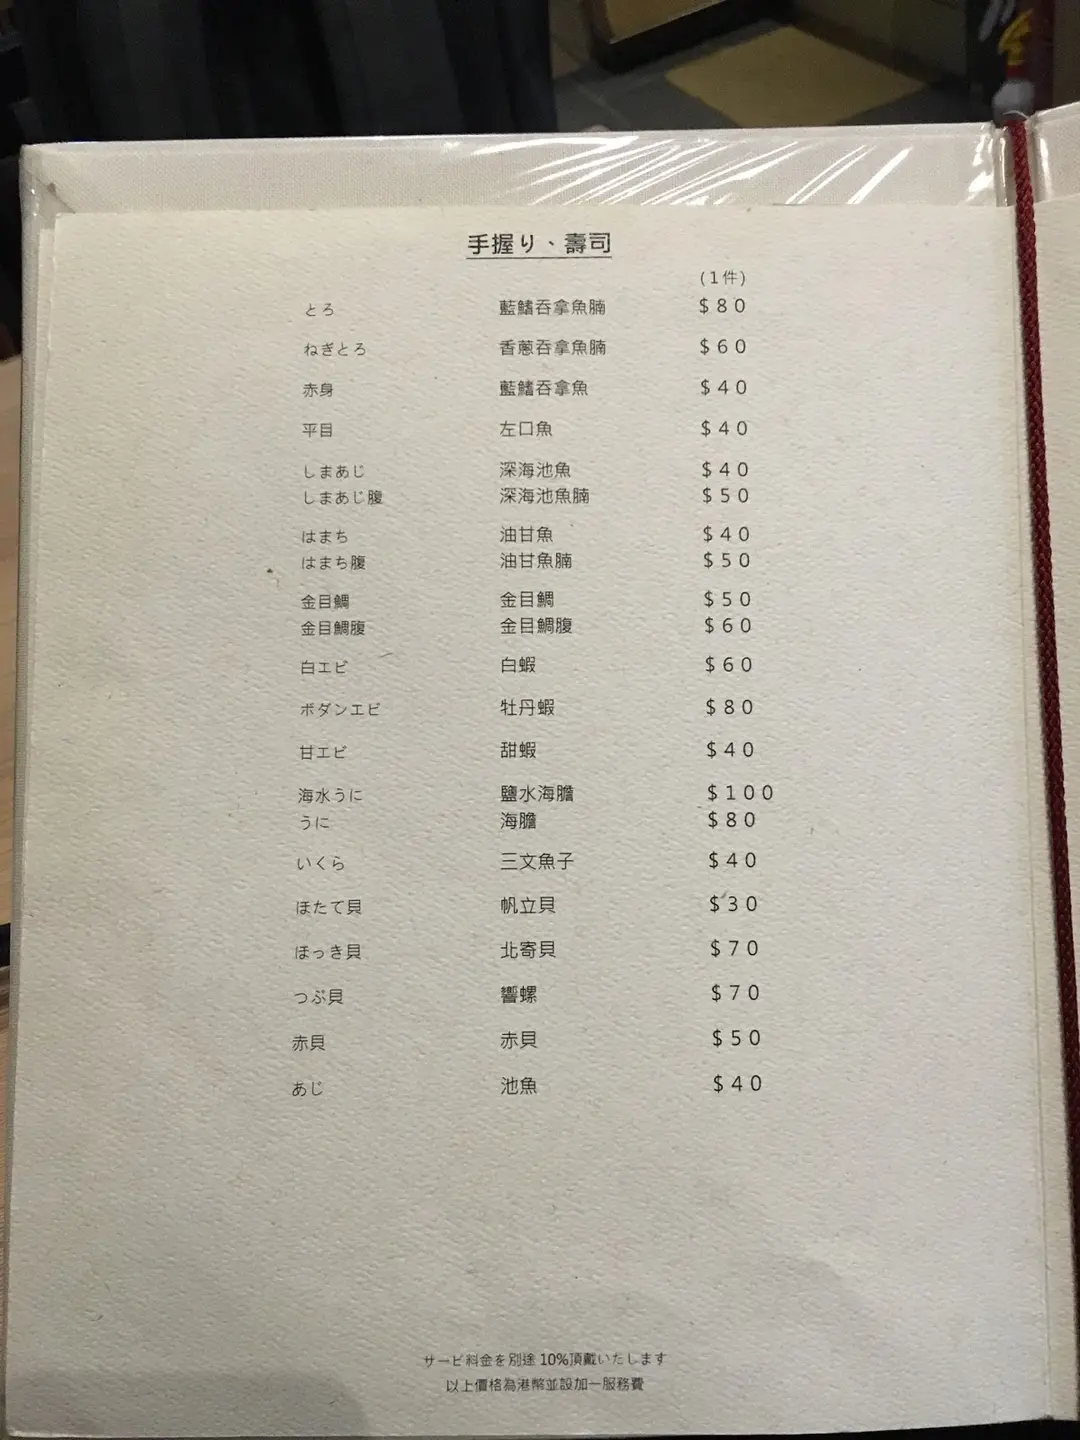 手握り、壽司
(1件)
とろ 藍鰭吞拿魚腩 $80
ねぎとろ 香蔥吞拿魚腩 $60
赤身 藍鰭吞拿魚 $40
平目 左口魚 $40
しまあじ 深海池魚 $40
しまあじ腹 深海池魚腩 $50
はまち 油甘魚 $40
はまち腹 油甘魚腩 $50
金目鯛 金目鯛 $50
金目鯛腹 金目鯛腹 $60
白エビ 白蝦 $60
ボダンエビ 牡丹蝦 $80
甘エビ 甜蝦 $40
海水うに 鹽水海膽 $100
うに 海膽 $80
いくら 三文魚子 $40
ほたて貝 帆立貝 $30
ほっき貝 北寄貝 $70
つぶ貝 響螺 $70
赤貝 赤貝 $50
あじ 池魚 $40
サービ料金を別途 10%頂戴いたします
以上價格為港幣並設加一服務費